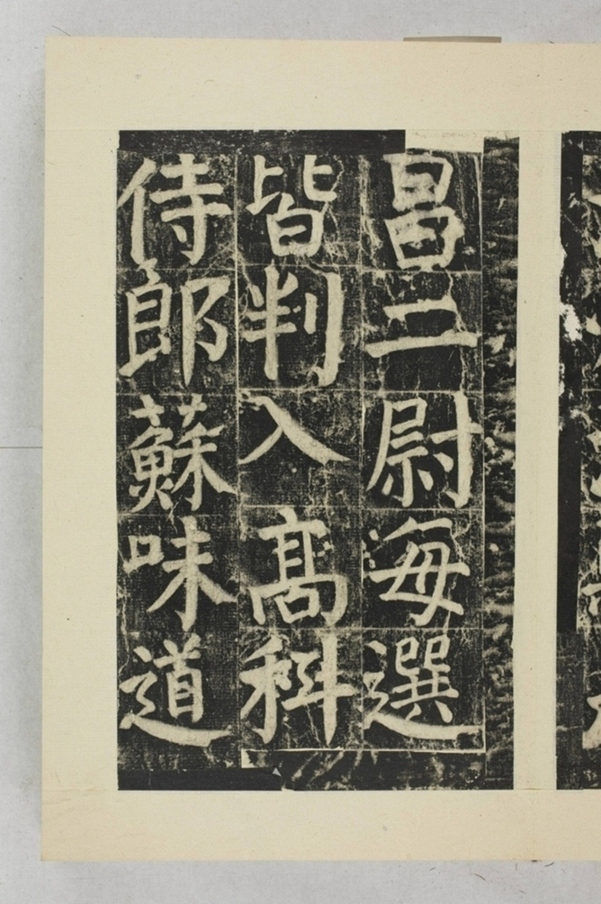 昌二尉每選
皆判入高科
侍郎蘇味道